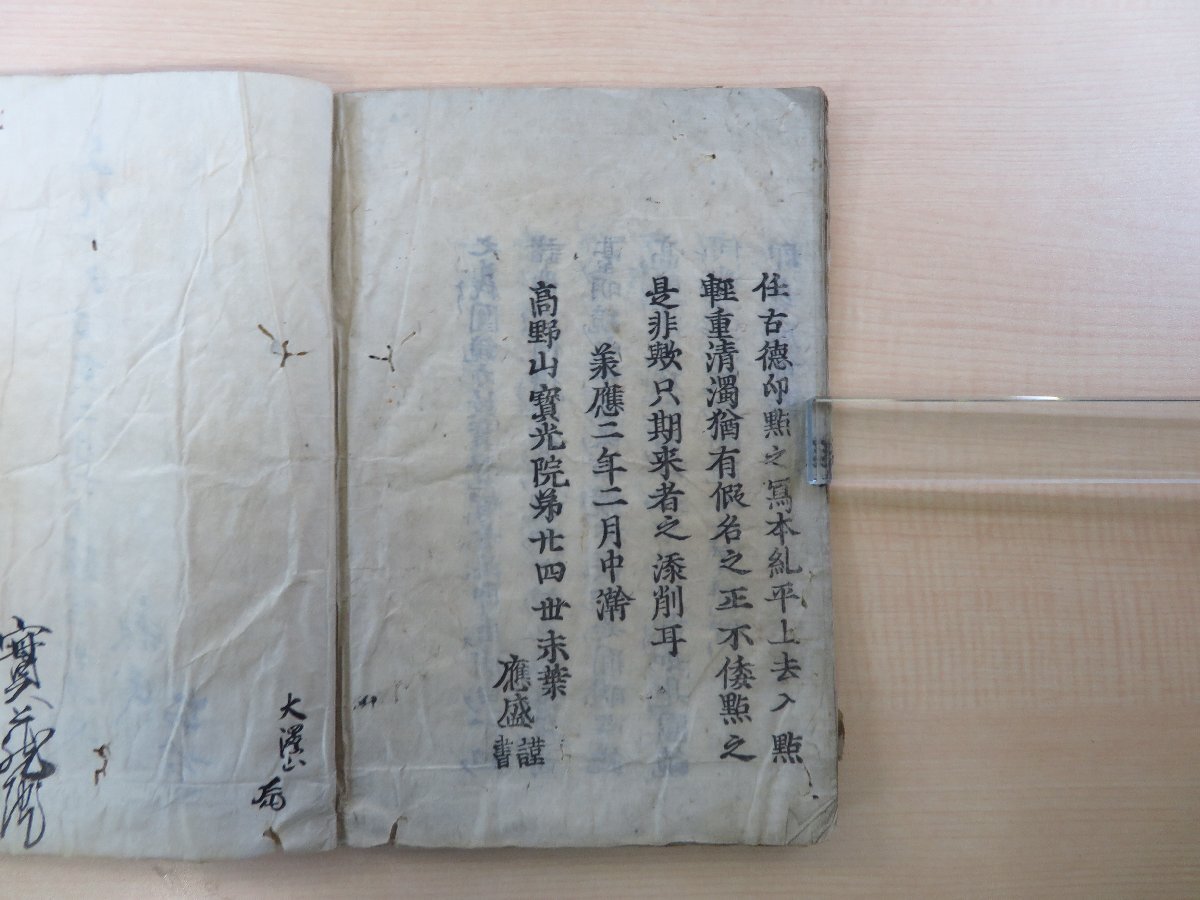 任古德印點之寫本糺平上去入點
輕重清濁猶有假名之正不倭點之
是非歟只期来者之添削耳
羕應二年二月中澣
高野山寶光院苐廿四世末葉
應盛
謹
書
大
山